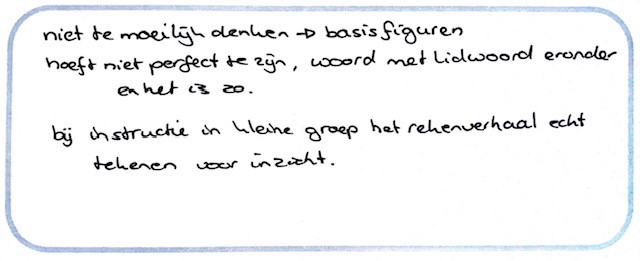 niet te moeilijk denken → basisfiguren
hoeft niet perfect te zijn, woord met lidwoord eronder
en het is zo.
bij instructie in kleine groep het rekenverhaal echt
tekenen voor inzicht.